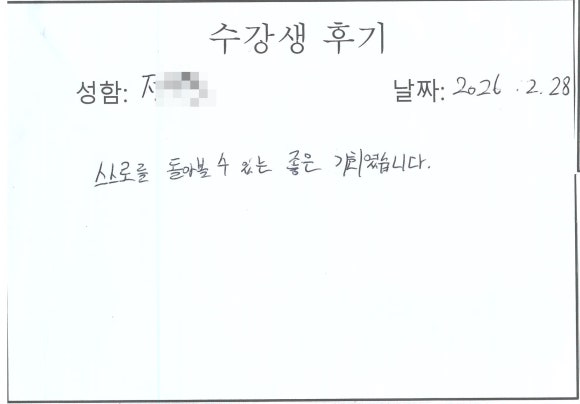 수강생 후기
성함:
날짜: 2026.2.28
스스로를 돌아볼 수 있는 좋은 기회였습니다.